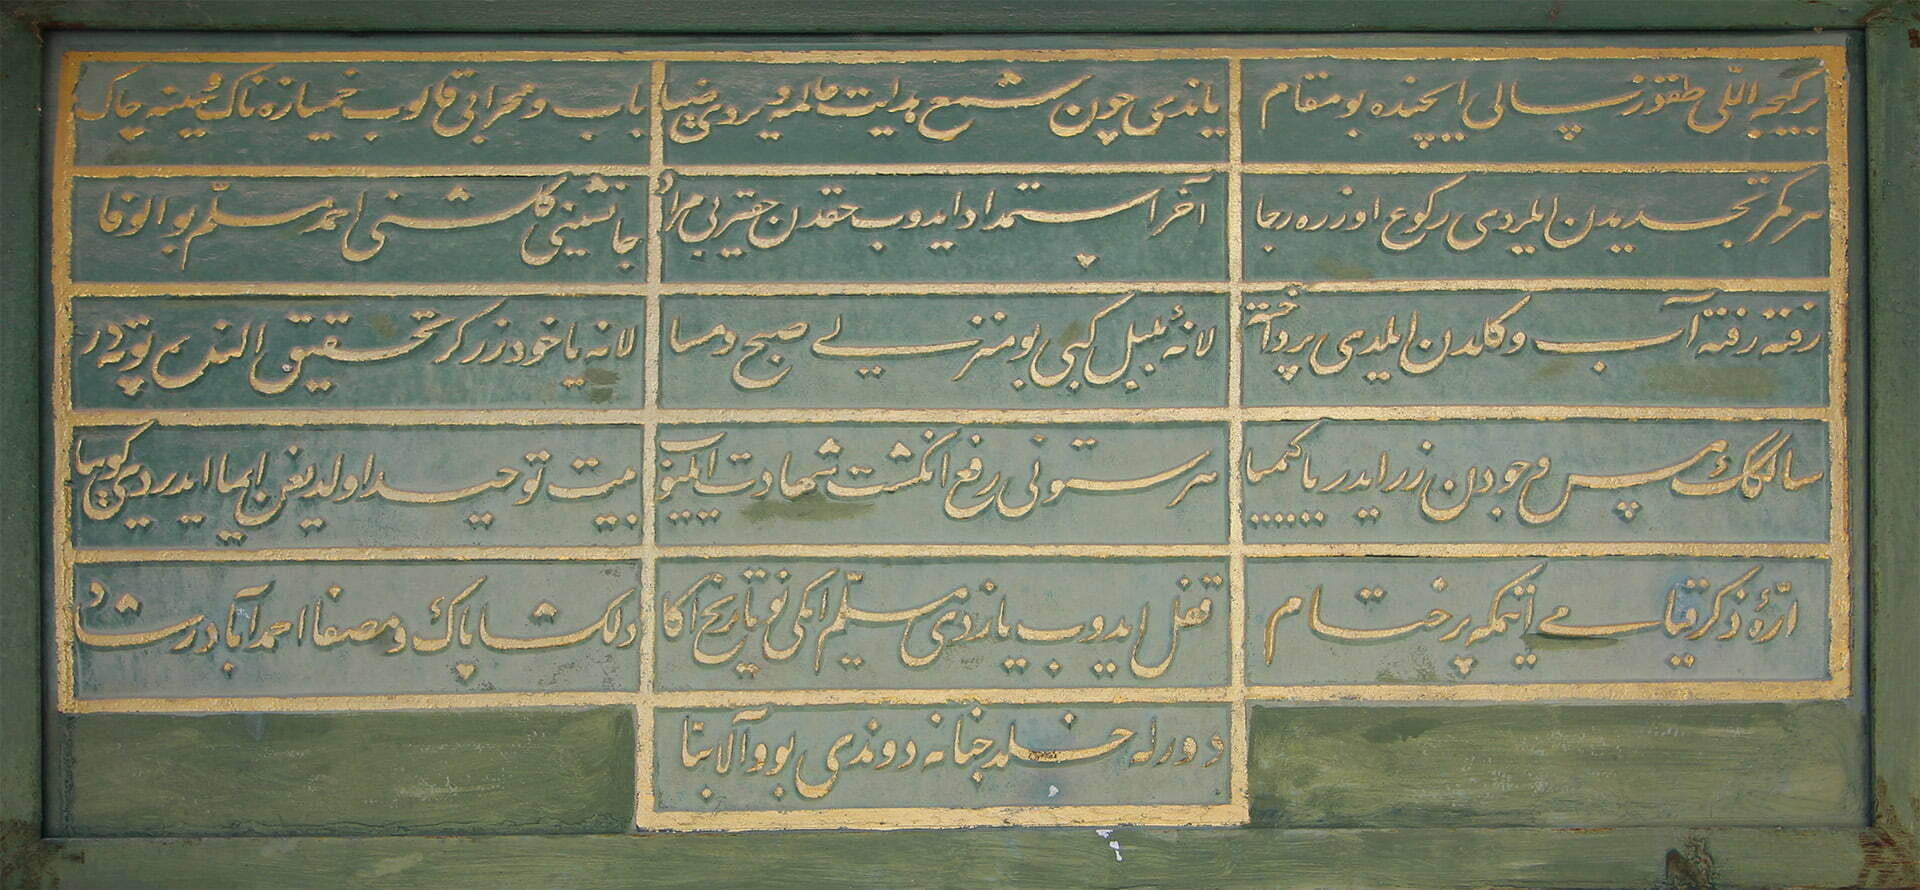 بر گیجه اللی طقوز سالی ایچنده بو مقام
یاندی چون شمع هدایت عالمه ویردی ضیا
باب و محرابی قالوب خمیازه ناک و سینه چاک
هر کمر تجدیدن ایلردی رکوع اوزره رجا
آخر استمداد ایدوب حقدن حقیر بی مراد
جانشینی گلشنی احمد مسلم بو الوفا
رفته رفته آب و گلدن ایلدی پرداخته
لانهٔ بلبل کبی بو منزلی صبح و مسا
لانه یا خود زرگر تحقیق النده پوته در
سالکك مس وجودن زر ایدر یا کیمیا
هر ستونی رفع انگشت شهادت ایلیوب
بیت توحید اولدیغن ایما ایدردی گوییا
ارّهٔ ذکر قیامی ایتمکه پر ختام
قفل ایدوب یازدی مسلّم ایکی نو تاریخ اکا
دلگشا پاک و مصفا احمد آباد رشاد
دورله خلد جنانه دوندی بو والا بنا